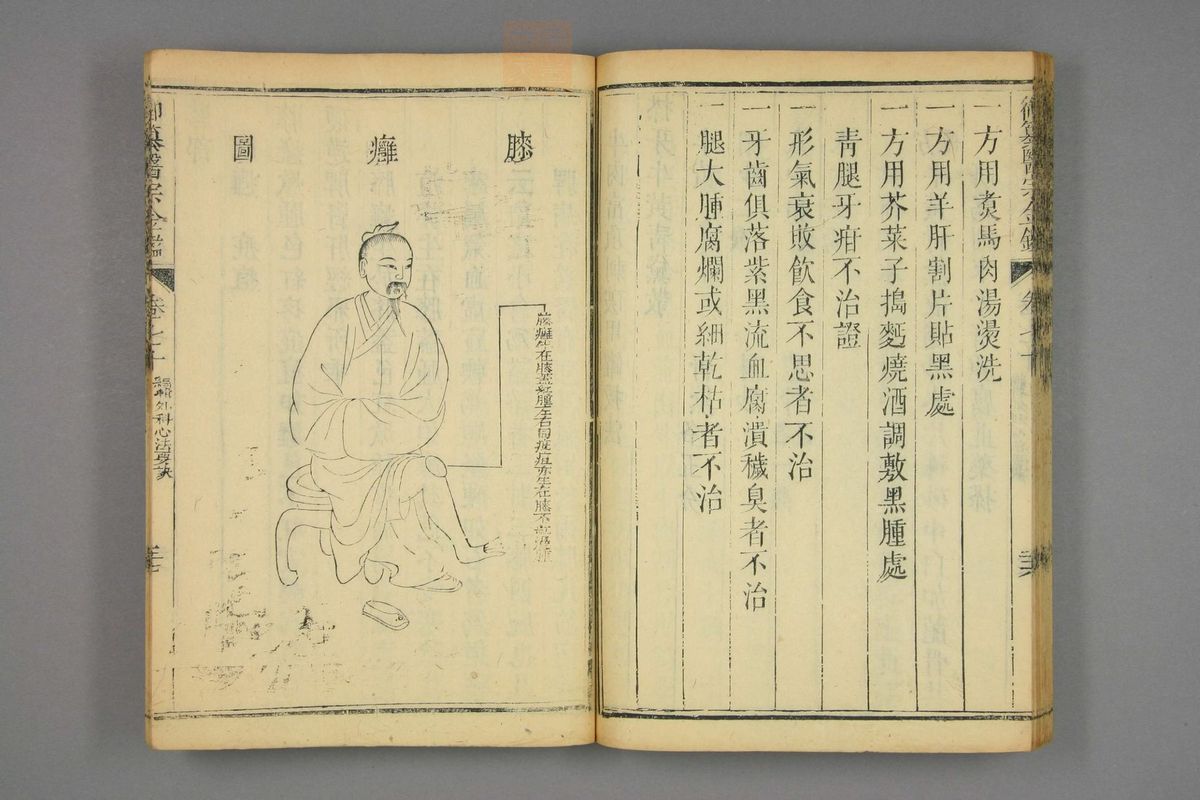 御纂醫宗金鑑
卷七十
一方用煑馬肉湯燙洗
一方用羊肝割片貼黑處
一方用芥菜子搗麪燒酒調敷黑腫處
青腿牙疳不治證
一形氣衰敗飲食不思者不治
一牙齒俱落紫黑流血腐潰穢臭者不治
一腿大腫腐爛或細乾枯者不治
膝癰圖
膝癰生在膝蓋紅腫
疽亦生在膝不紅
御纂醫宗金鑑
卷七十
編輯外科心法要訣